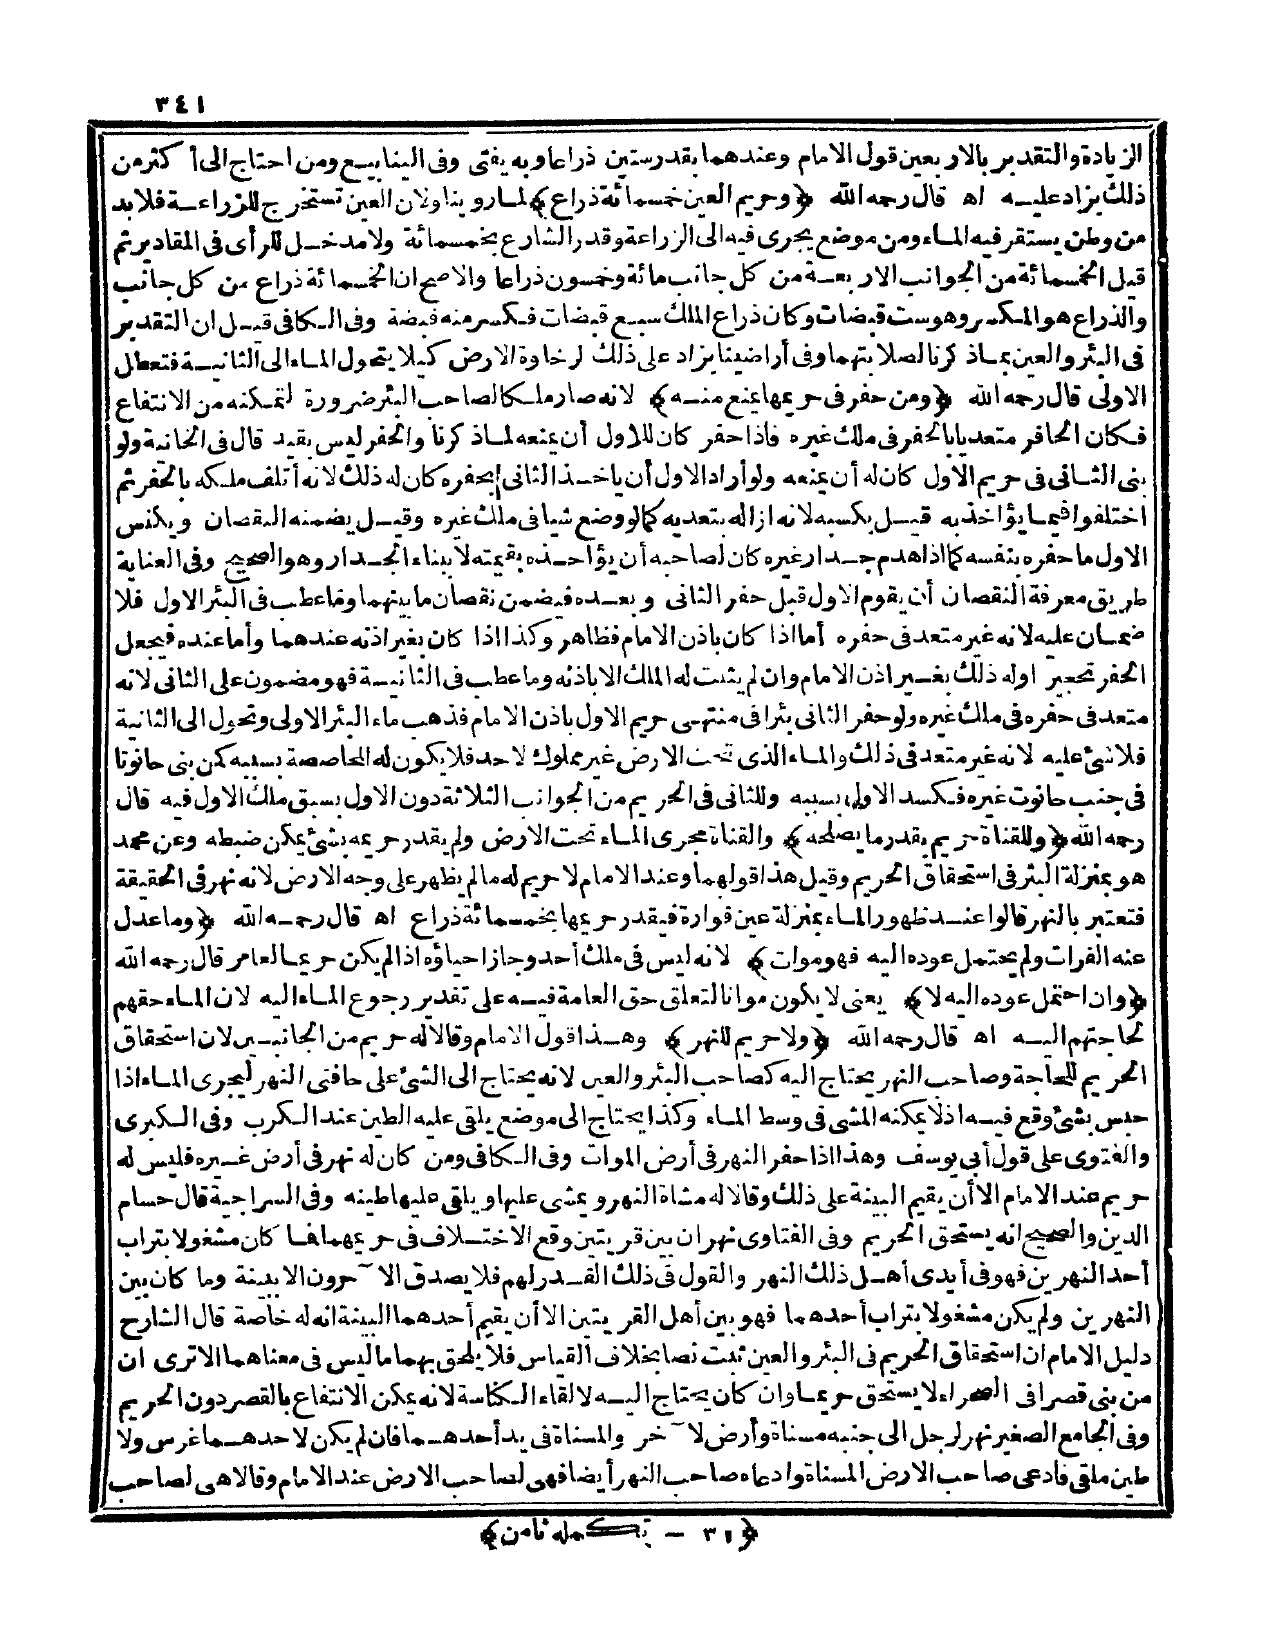 ٣٤١
الزيادة والتقدير بالاربعين قول الامام وعندهما بقدر ستين ذراعا وبه يفتى وفى الينابيع ومن احتاج الى أكثر من
ذلك يزاد عليه اه قال رحمه الله ﴿وحريم العين خمسمائة ذراع﴾ لما روينا ولان العين تستخرج للزراعة فلا بد
من وطن يستقر فيه الماء ومن موضع يجرى فيه الى الزراعة وقدر الشارع بخمسمائة ولا مدخل للرأى فى المقادير ثم
قيل الخمسمائة من الجوانب الاربعة من كل جانب مائة وخمسون ذراعا والاصح ان الخمسمائة ذراع من كل جانب
والذراع هو المكسر وهو ست قبضات وكان ذراع الملك سبع قبضات فكسر منه قبضة وفى الكافى قيل ان التقدير
فى البئر والعين بما ذكرنا لصلابتهما وفى أراضينا يزاد على ذلك لرخاوة الارض كيلا يتحول الماء الى الثانية فتعطل
الاولى قال رحمه الله ﴿ومن حفر فى حريمها يمنع منه﴾ لانه صار ملكا لصاحب البئر ضرورة لتمكنه من الانتفاع
فكان الحافر متعديا بالحفر فى ملك غيره فاذا حفر كان للاول أن يمنعه لما ذكرنا والحفر ليس بقيد قال فى الخانية ولو
بنى الثانى فى حريم الاول كان له أن يمنعه ولو أراد الاول أن ياخذ الثانى بحفره كان له ذلك لانه أتلف ملكه بالحفر ثم
اختلفوا فيما يؤاخذ به قيل بكسبه لانه ازاله بتعديه كما لو وضع شيا فى ملك غيره وقيل يضمنه النقصان ويكنس
الاول ما حفره بنفسه كما اذا هدم جدار غيره كان لصاحبه أن يؤاخذه بقيمته لا ببناء الجدار وهو الصحيح وفى العناية
طريق معرفة النقصان أن يقوم الاول قبل حفر الثانى وبعده فيضمن نقصان ما بينهما وما عطب فى البئر الاول فلا
ضمان عليه لانه غير متعد فى حفره أما اذا كان باذن الامام فظاهر وكذا اذا كان بغير اذنه عندهما وأما عنده فيجعل
الحفر تحجير اوله ذلك بغير اذن الامام وان لم يثبت له الملك الا باذنه وما عطب فى الثانية فهو مضمون على الثانى لانه
متعد فى حفره فى ملك غيره ولو حفر الثانى بئرا فى منتهى حريم الاول باذن الامام فذهب ماء البئر الاولى وتحول الى الثانية
فلا شئ عليه لانه غير متعد فى ذلك والماء الذى تحت الارض غير مملوك لاحد فلا يكون له المخاصمة بسببه كمن بنى حانوتا
فى جنب حانوت غيره فكسد الاول بسببه وللثانى فى الحريم من الجوانب الثلاثة دون الاول بسبق ملك الاول فيه قال
رحمه الله ﴿وللقناة حريم بقدر ما يصلحه﴾ والقناة مجرى الماء تحت الارض ولم يقدر حريمه بشئ يمكن ضبطه وعن محمد
هو بمنزلة البئر فى استحقاق الحريم وقيل هذا قولهما وعند الامام لا حريم له ما لم يظهر على وجه الارض لانه نهر فى الحقيقة
فتعتبر بالنهر قالوا عند ظهور الماء بمنزلة عين فوارة فيقدر حريمها بخمسمائة ذراع اه قال رحمه الله ﴿وما عدل
عنه الفرات ولم يحتمل عوده اليه فهو موات﴾ لانه ليس فى ملك أحد وجاز احياؤه اذا لم يكن حريما لعامر قال رحمه الله
﴿وان احتمل عوده اليه لا﴾ يعنى لا يكون مواتا لتعلق حق العامة فيه على تقدير رجوع الماء اليه لان الماء حقهم
لحاجتهم اليه اه قال رحمه الله ﴿ولا حريم للنهر﴾ وهذا قول الامام وقالا له حريم من الجانبين لان استحقاق
الحريم للحاجة وصاحب النهر يحتاج اليه كصاحب البئر والعين لانه يحتاج الى الشئ على حافتى النهر ليجرى الماء اذا
حبس بشئ وقع فيه اذ لا يمكنه المشى فى وسط الماء وكذا يحتاج الى موضع يلقى عليه الطين عند الكرب وفى الكبرى
والفتوى على قول أبى يوسف وهذا اذا حفر النهر فى أرض الموات وفى الكافى ومن كان له نهر فى أرض غيره فليس له
حريم عند الامام الا أن يقيم البينة على ذلك وقالا له مشاة النهر ويمشى عليها ويلقى عليها طينه وفى السراجية قال حسام
الدين والصحيح انه يستحق الحريم وفى الفتاوى نهران بين قريتين وقع الاختلاف فى حريمهما فما كان مشغولا بتراب
أحد النهرين فهو فى أيدى أهل ذلك النهر والقول فى ذلك القدر لهم فلا يصدق الآخرون الا ببينة وما كان بين
النهرين ولم يكن مشغولا بتراب أحدهما فهو بين أهل القريتين الا أن يقيم أحدهما البينة انه له خاصة قال الشارح
دليل الامام ان استحقاق الحريم فى البئر والعين ثبت نصا بخلاف القياس فلا يلحق بهما ما ليس فى معناهما الا ترى ان
من بنى قصرا فى الصحراء لا يستحق حريما وان كان يحتاج اليه لالقاء الكناسة لانه يمكن الانتفاع بالقصر دون الحريم
وفى الجامع الصغير نهر لرجل الى جنبه مسناة وأرض لآخر والمسناة فى يد أحدهما فان لم يكن لاحدهما غرس ولا
طين ملقى فادعى صاحب الارض المسناة وادعاه صاحب النهر أيضا فهى لصاحب الارض عند الامام وقالا هى لصاحب
﴿٣١ - تكمله ثامن﴾